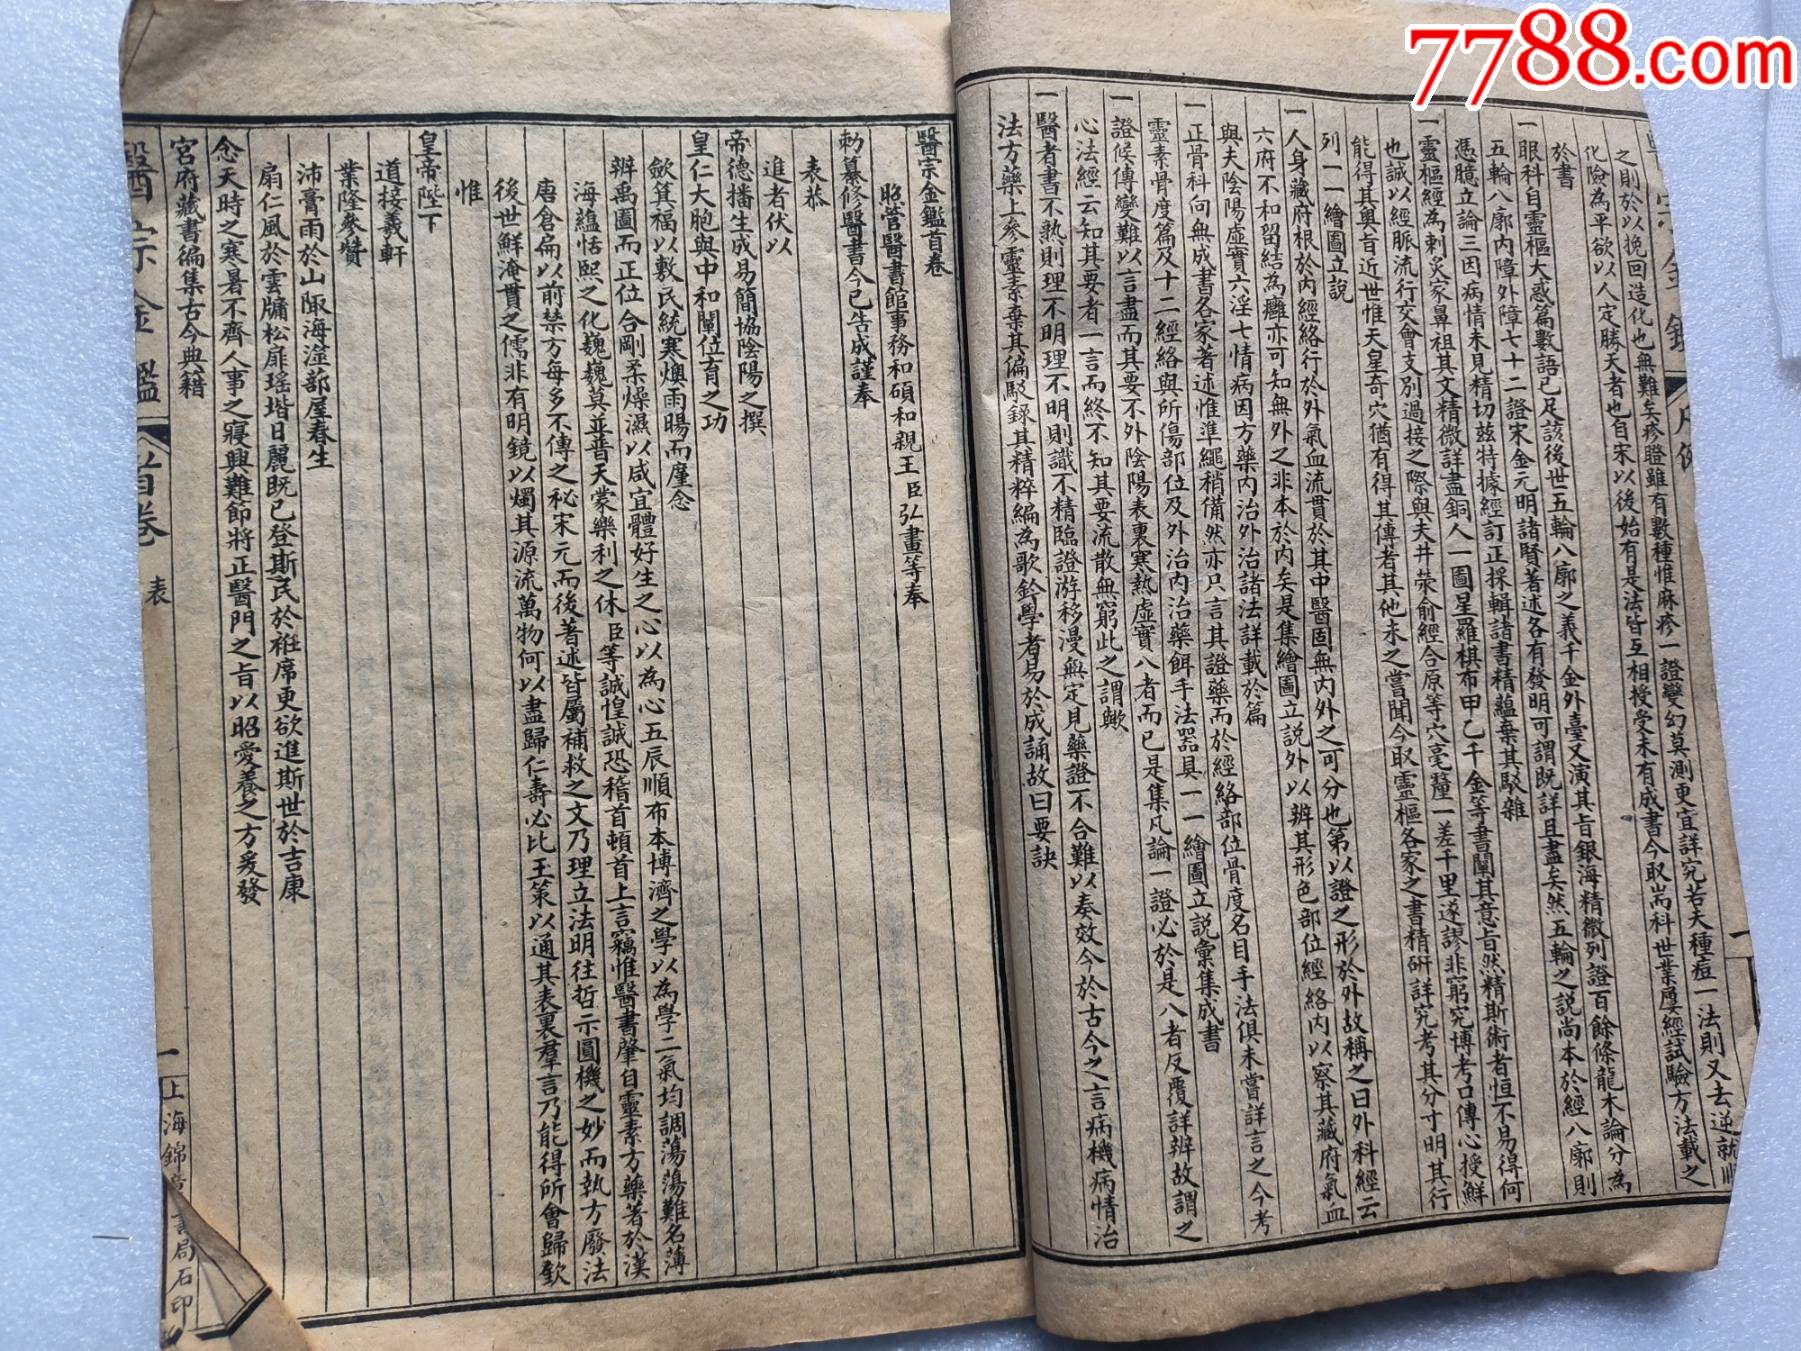 7788.com
之則於以挽回造化也無難矣疹證雖有數種惟麻疹一證變幻莫測更宜詳究若夫種痘一法則又去逆就順
化險為平欲以人定勝天者也自宋以後始有是法皆互相授受未有成書今取耑科世業屢經試驗方法載之
於書
一眼科自靈樞大惑篇數語已足該後世五輪八廓之義千金外臺又演其旨銀海精微列證百餘條龍木論分為
五輪八廓內障外障七十二證宋金元明諸賢著述各有發明可謂既詳且盡矣然五輪之說尚本於經八廓則
憑臆立論三因病情未見精切茲特據經訂正採輯諸書精蘊棄其駁雜
一靈樞經為刺灸家鼻祖其文精微詳盡銅人一圖星羅棋布甲乙千金等書闡其意旨然精斯術者恒不易得何
也誠以經脈流行交會支別過接之際與夫井滎俞經合原等穴毫釐一差千里遂謬非窮究博考口傳心授鮮
能得其奧旨近世惟天皇奇穴猶有得其傳者其他未之嘗聞今取靈樞各家之書精研詳究考其分寸明其行
列一一繪圖立說
一人身藏府根於內經絡行於外氣血流貫於其中醫固無內外之可分也第以證之形於外故稱之曰外科經云
六府不和留結為癰亦可知無外之非本於內矣是集繪圖立說外以辨其形色部位經絡內以察其藏府氣血
與夫陰陽虛實六淫七情病因方藥內治外治諸法詳載於篇
一正骨科向無成書各家著述惟準繩稍備然亦只言其證藥而於經絡部位骨度名目手法俱未嘗詳言之今考
靈素骨度篇及十二經絡與所傷部位及外治內治藥餌手法器具一一繪圖立說彙集成書
一證候傳變難以言盡而其要不外陰陽表裏寒熱虛實八者而已是集凡論一證必於是八者反覆詳辨故謂之
心法經云知其要者一言而終不知其要流散無窮此之謂歟
一醫者書不熟則理不明理不明則識不精臨證游移漫無定見藥證不合難以奏效今於古今之言病機病情治
法方藥上參靈素棄其偏駁錄其精粹編為歌訣學者易於成誦故曰要訣
醫宗金鑑首卷
照管醫書館事務和碩和親王臣弘晝等奉
勅纂修醫書今已告成謹奉
表恭
進者伏以
帝德播生成易簡協陰陽之撰
皇仁大胞與中和闡位育之功
歛箕福以敷民統寒燠雨暘而廑念
辨禹圖而正位合剛柔燥濕以咸宜體好生之心以為心五辰順布本博濟之學以為學二氣均調蕩蕩難名薄
海蘊恬熙之化巍巍莫並普天蒙樂利之休臣等誠惶誠恐稽首頓首上言竊惟醫書肇自靈素方藥著於漢
唐倉扁以前禁方每多不傳之秘宋元而後著述皆屬補救之文乃理立法明往哲示圓機之妙而執方廢法
後世鮮淹貫之儒非有明鏡以燭其源流萬物何以盡歸仁壽必比玉策以通其表裏羣言乃能得所會歸欽
惟
皇帝陛下
道接羲軒
業隆參贊
沛膏雨於山陬海澨蔀屋春生
扇仁風於雲牖松扉瑤堦日麗既已登斯民於袵席更欲進斯世於吉康
念天時之寒暑不齊人事之寢興難節將正醫門之旨以昭愛養之方爰發
宮府藏書徧集古今典籍
醫宗金鑑 首卷 表 一 上海錦章書局石印